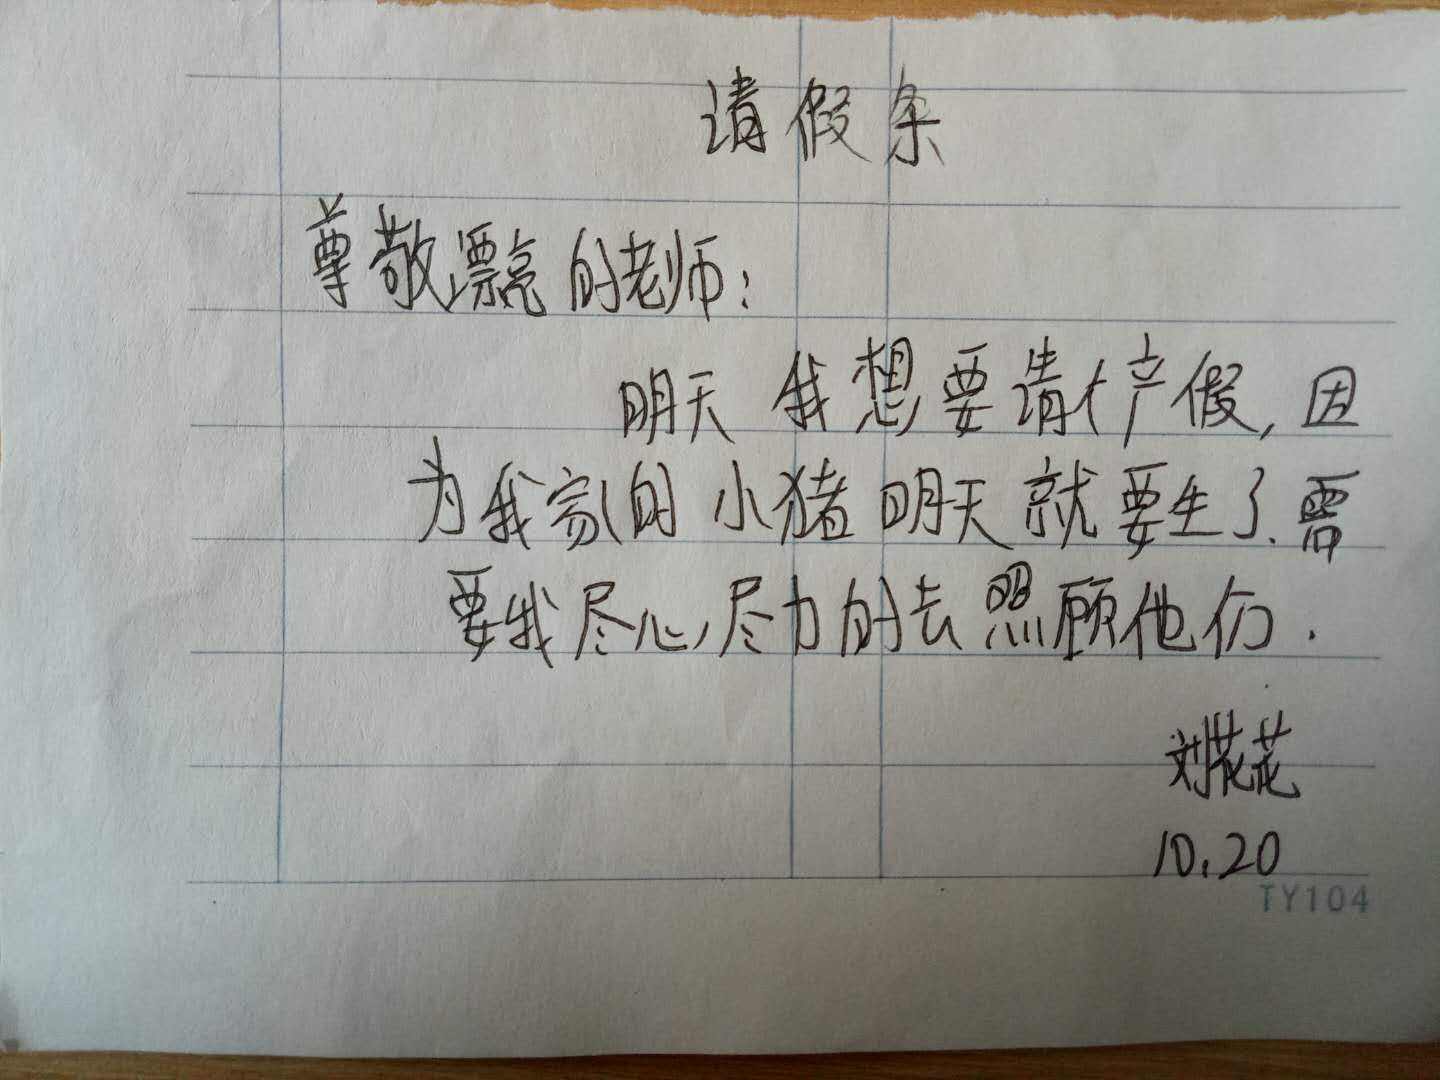 请假条
尊敬漂亮的老师：
明天我想要请个产假，因
为我家的小猪明天就要生了.需
要我尽心尽力的去照顾他们.
刘花花
10.20
TY104